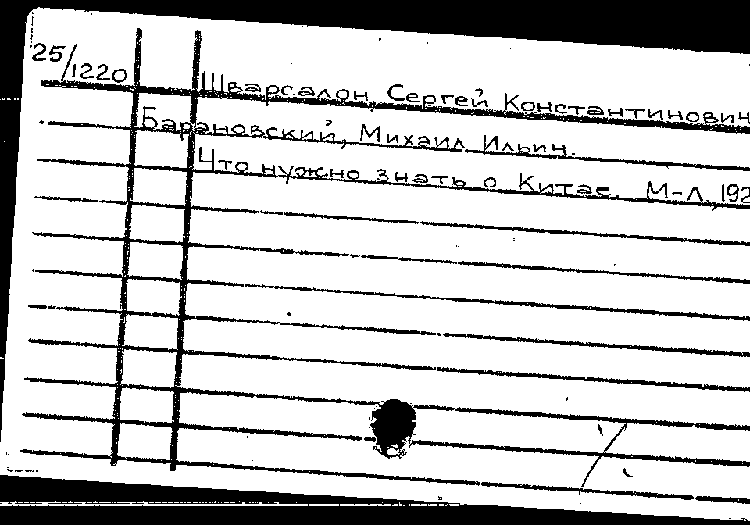 25/1220
Шварсалон, Сергей Константинович
Барановский, Михаил Ильич.
Что нужно знать о Китае. М-Л., 192